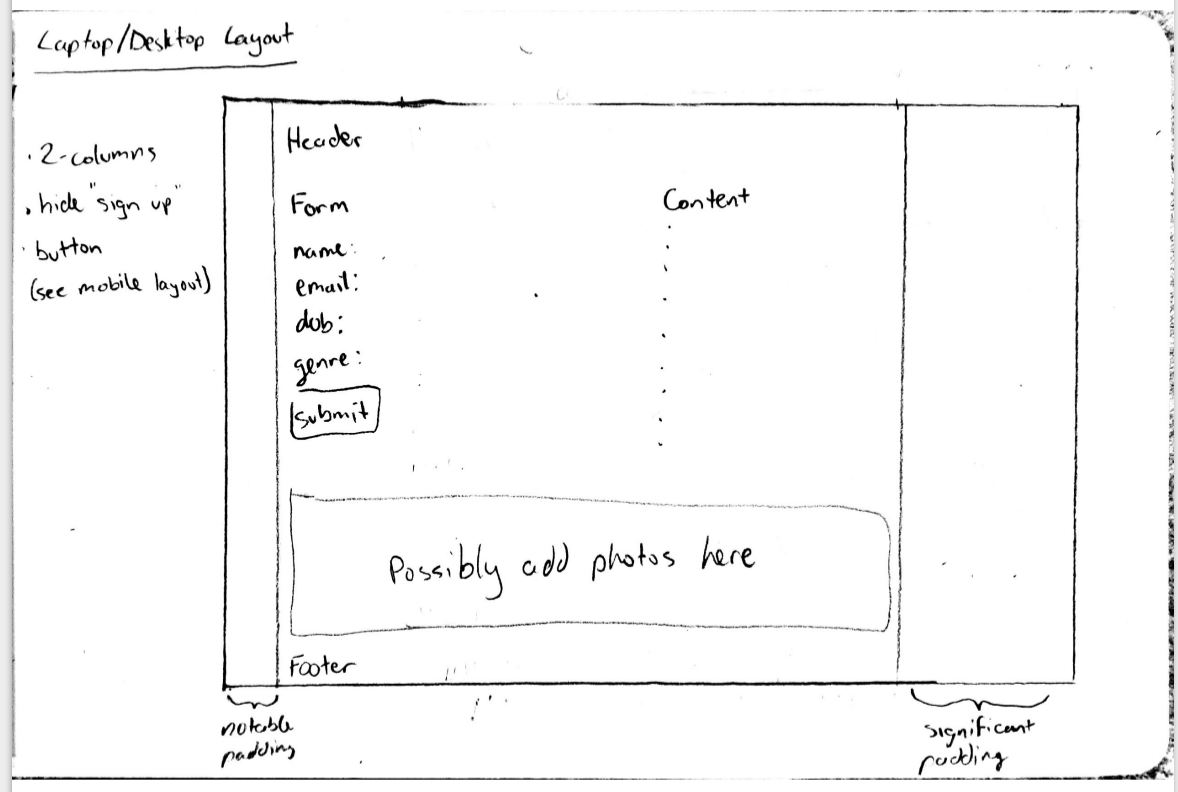 Laptop/Desktop Layout
· 2-columns
· hide "sign up"
· button
(see mobile layout)
Header
Form
name:
email:
dob:
genre:
submit
Content
Possibly add photos here
Footer
notable
padding
significant
padding